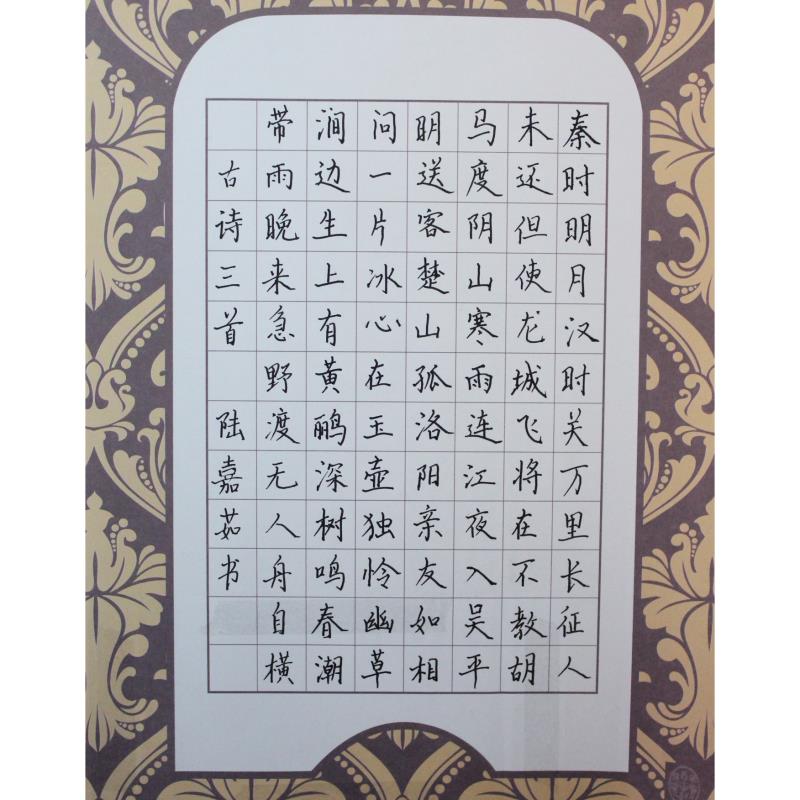 秦时明月汉时关万里长征人
未还但使龙城飞将在不教胡
马度阴山寒雨连江夜入吴平
明送客楚山孤洛阳亲友如相
问一片冰心在玉壶独怜幽草
涧边生上有黄鹂深树鸣春潮
带雨晚来急野渡无人舟自横
古诗三首 陆嘉茹书